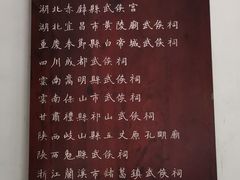 湖北赤壁縣武侯宮
湖北宜昌市黄陵廟武侯祠
重慶奉節縣白帝城武侯祠
四川成都武侯祠
雲南嵩明縣武侯祠
雲南保山市武侯祠
甘肅禮縣祁山武侯祠
陝西岐山縣五丈原孔明廟
陝西勉縣武侯祠
浙江蘭溪市諸葛鎮武侯祠